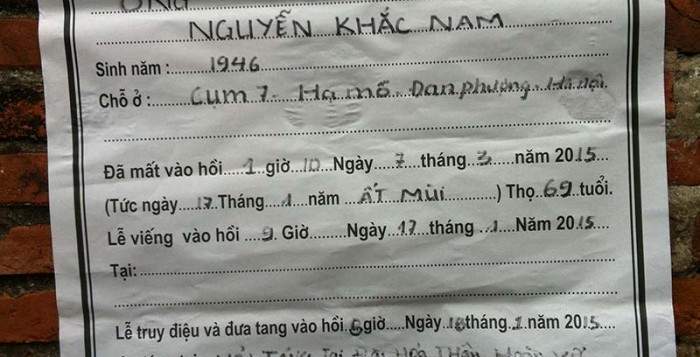 ÔNG
NGUYỄN KHẮC NAM
Sinh năm : 1946
Chỗ ở : Cụm 7. Hạ mỗ. Đan phượng. Hà Nội.
Đã mất vào hồi 1 giờ 10 Ngày 7 tháng 3 năm 2015
(Tức ngày 17 Tháng 1 năm ẤT MÙI ) Thọ 69 tuổi.
Lễ viếng vào hồi 9 Giờ Ngày 17 tháng 1 Năm 2015
Tại:
Lễ truy điệu và đưa tang vào hồi 6 giờ Ngày 18 tháng 1 năm 2015